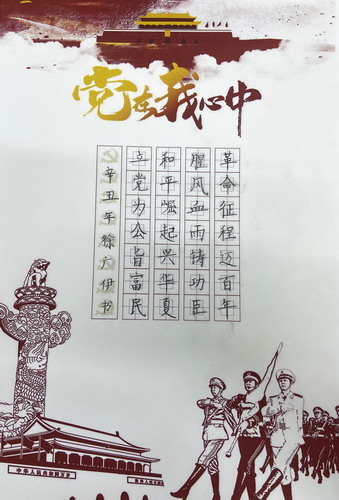 党在我心中
革命征程迈百年
腥风血雨铸功臣
和平崛起兴华夏
立党为公旨富民
辛丑年徐广伊书